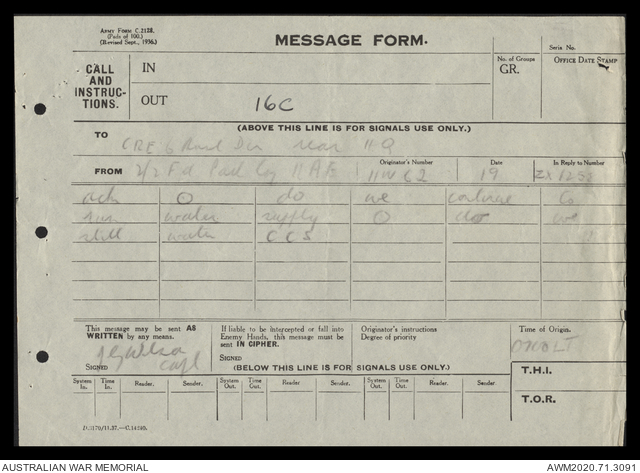 ARMY FORM C.2128.
(Pads of 100.)
(Revised Sept., 1936.)
MESSAGE FORM.
Serial No.
CALL AND INSTRUC-TIONS.
IN
No. of Groups GR.
OFFICE DATE STAMP
OUT 16C
(ABOVE THIS LINE IS FOR SIGNALS USE ONLY.)
TO CRE 6 Div rear HQ
FROM 2/2 Fd Coy
Originator's Number 62
Date 19
In Reply to Number
ack O do we continue to
run water supply O do we
still water CCS
This message may be sent AS WRITTEN by any means.
If liable to be intercepted or fall into Enemy Hands, this message must be sent IN CIPHER.
Originator's instructions Degree of priority
Time of Origin.
SIGNED Capt
SIGNED
(BELOW THIS LINE IS FOR SIGNALS USE ONLY.)
T.H.I.
System In. Time In. Reader. Sender. System Out. Time Out. Reader. Sender. System Out. Time Out. Reader. Sender.
T.O.R.
AUSTRALIAN WAR MEMORIAL
AWM2020.71.3091